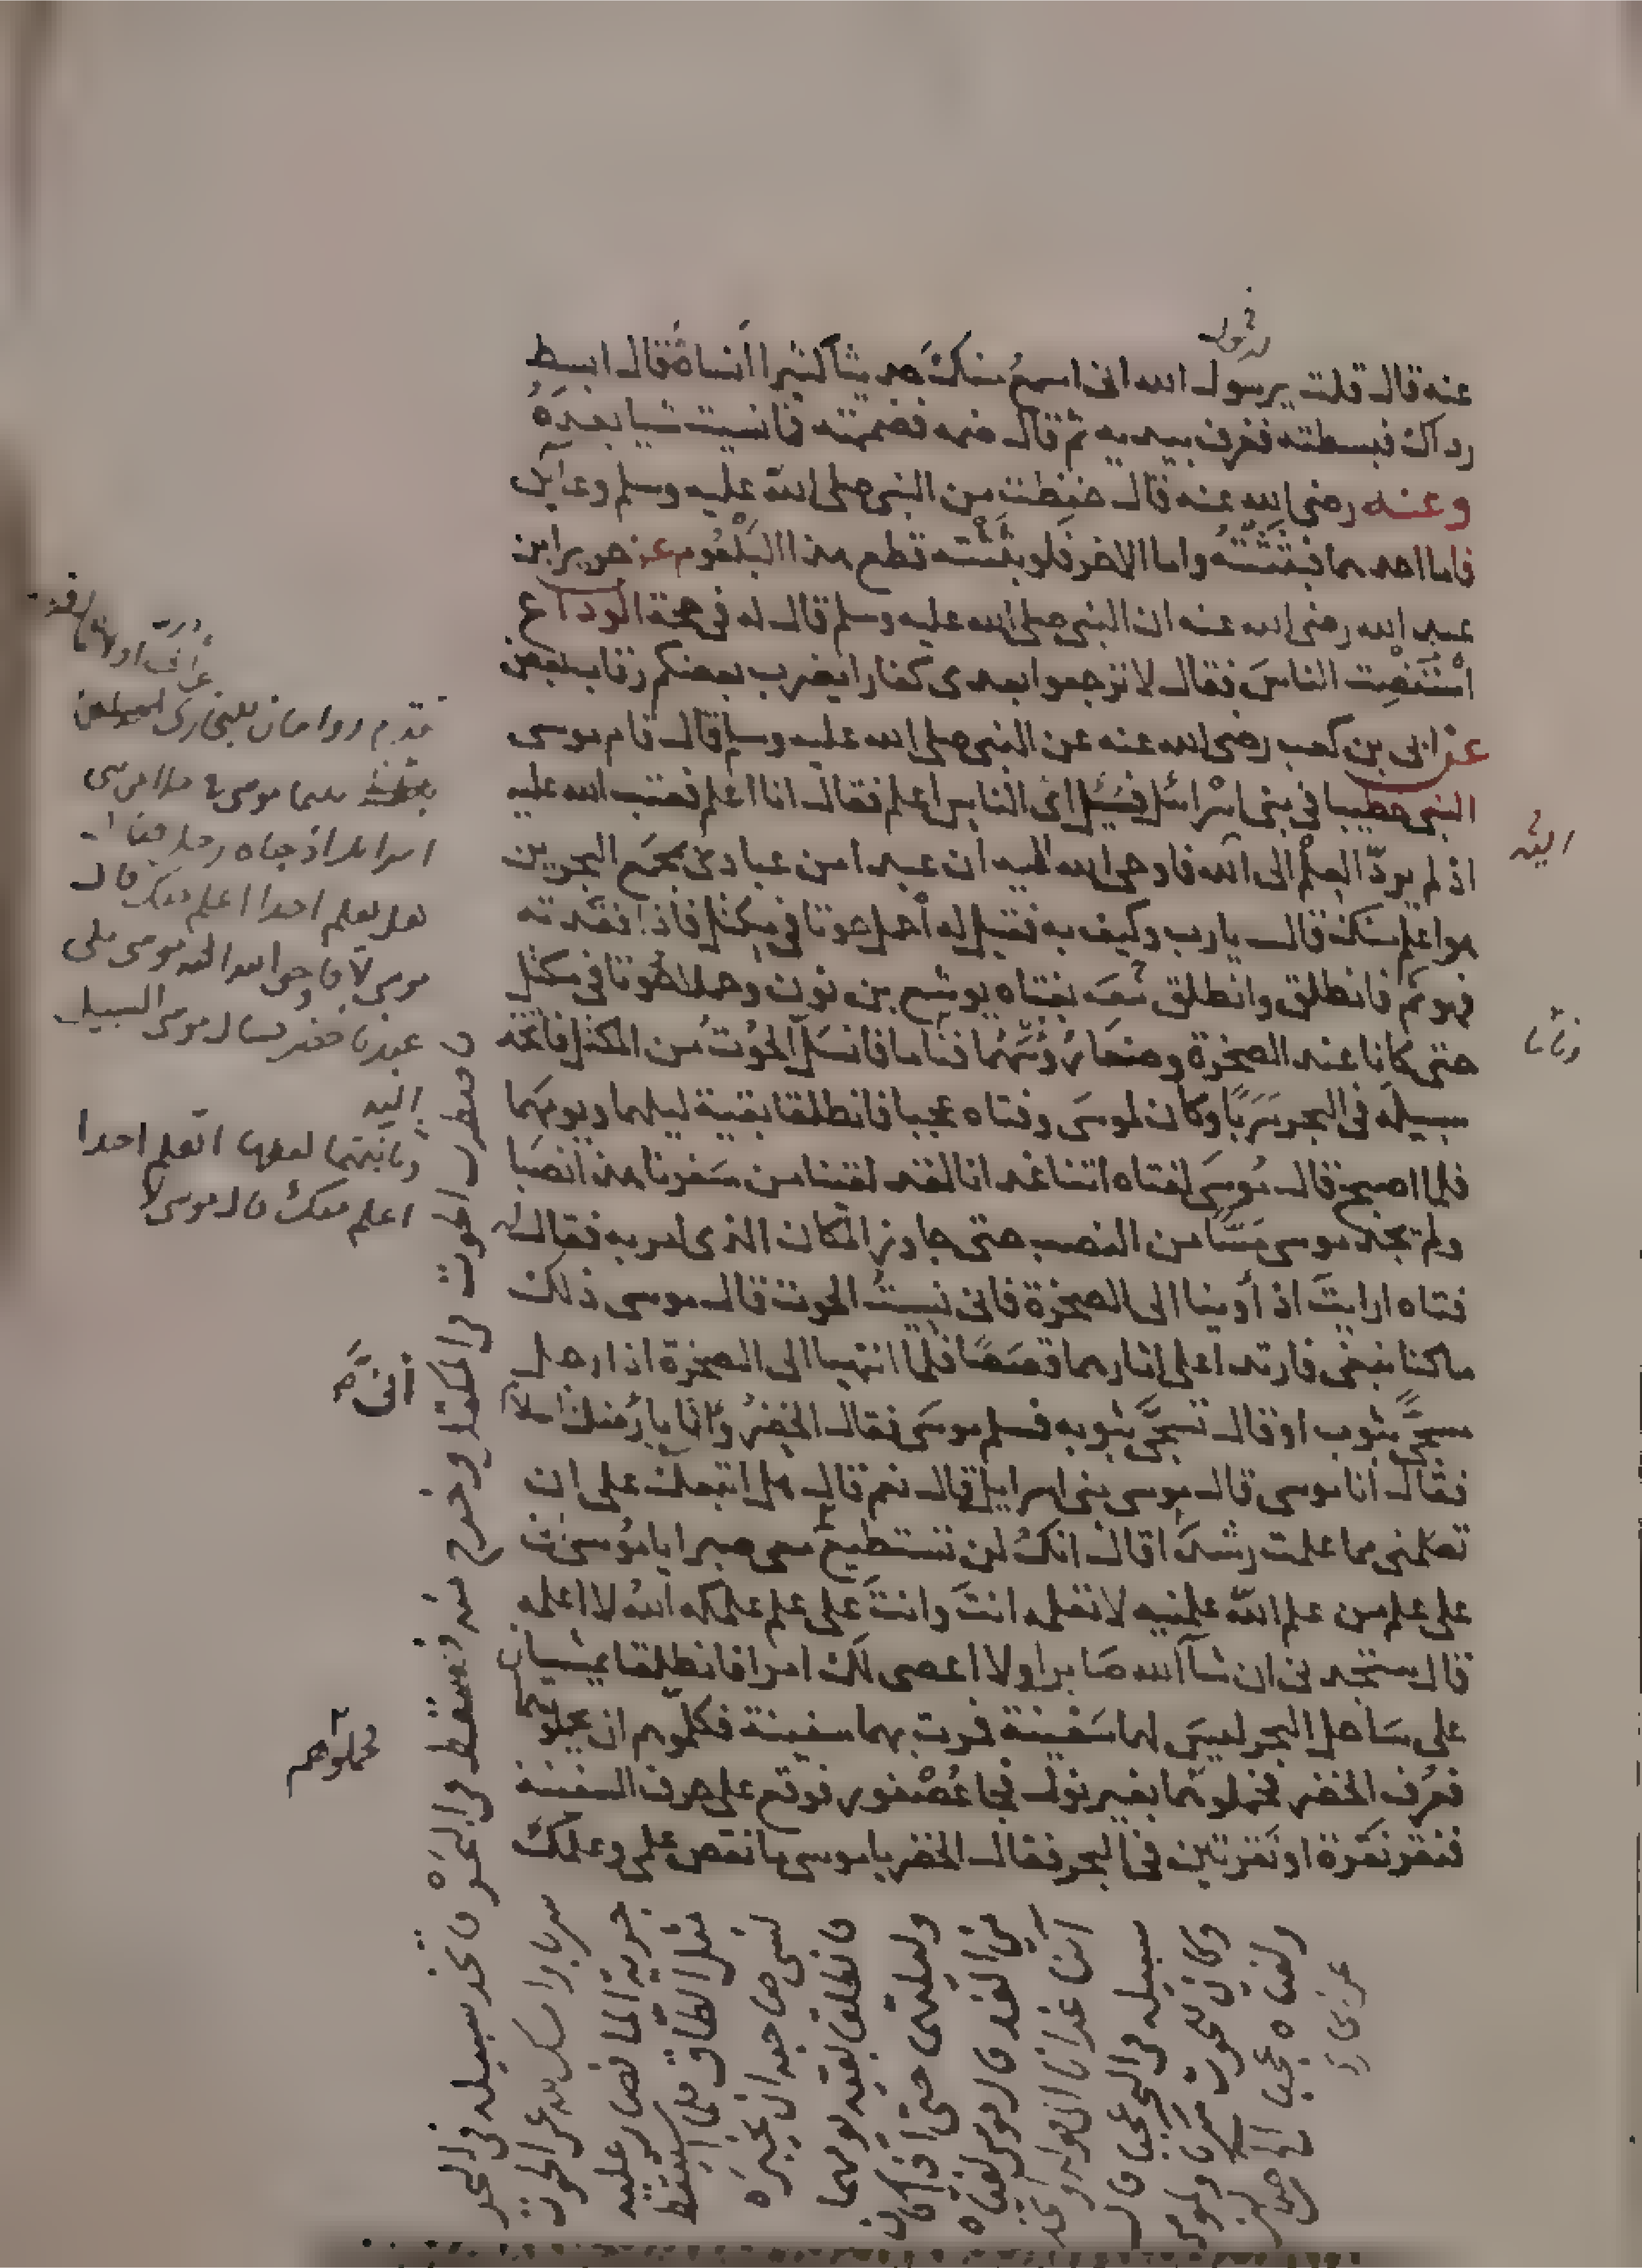 عنه قال قلت يرسول الله انى اسمع منك حديثا كثيرا أنساه قال ابسط
رداك فبسطته فغرف بيديه ثم قال ضمه فضممته فما نسيت شيا بعده
وعنه رضى الله عنه قال حفظت من النبي صلى الله عليه وسلم وعاين
فاما احدهما فبثثته واما الاخر فلو بثثته قطع هذا البلعوم عن جرير ابن
عبد الله رضى الله عنه ان النبي صلى الله عليه وسلم قال له فى حجة الوداع
استنصت الناس فقال لا ترجعوا بعدى كفارا يضرب بعضكم رقاب بعض
عن ابى بن كعب رضى الله عنه عن النبي صلى الله عليه وسلم قال قام موسى
النبي خطيبا في بنى اسرائل فسئل اى الناس اعلم فقال انا اعلم فعتب الله عليه
اذ لم يرد العلم الى الله فاوحى الله اليه ان عبدا من عبادى بمجمع البحرين
هو اعلم منك قال يارب وكيف به فقيل له احمل حوتا في مكتل فاذا فقدته
فهو ثم فانطلق وانطلق معه بفتاه يوشع بن نون وحملا حوتا في مكتل
حتى كانا عند الصخرة وضعا رؤسهما فناما فانسل الحوت من المكتل فاتخذ
سبيله في البحر سربا وكان لموسى وفتاه عجبا فانطلقا بقية ليلهما ويومهما
فلما اصبح قال موسى لفتاه اتنا غدانا لقد لقينا من سفرنا هذا نصبا
ولم يجد موسى مسا من النصب حتى جاوز المكان الذى امر به فقال له
فتاه ارايت اذ أوينا الى الصخرة فانى نسيت الحوت قال موسى ذلك
ما كنا نبغى فارتدا على اثارهما قصصا فلما انتهيا الى الصخرة اذا رجل
مسجى بثوب او قال تسجى بثوبه فسلم موسى فقال الخضر وانا بارضك السلام
فقال انا موسى قال موسى بنى اسرايل قال نعم قال هل اتبعك على ان
تعلمنى مما علمت رشدا قال انك لن تستطيع معى صبرا يا موسى انى
على علم من علم الله علمنيه لا تعلمه انت وانت على علم علمكه الله لا اعلمه
قال ستجدنى ان شآ الله صابرا ولا اعصى لك امرا فانطلقا يمشيان
على ساحل البحر ليس لهما سفينة فمرت بهما سفينة فكلموهم ان يحملوهما
فعرف الخضر فحملوهما بغير نول فجا عصفور فوقع على حرف السفينة
فنقر نقرة او نقرتين في البحر فقال الخضر يا موسى ما نقص علمى وعلمك
اليه
تقدم روايتان للبخارى
بينما موسى فى ملا من بنى
اسرايل اذ جاه رجل فقال
هل تعلم احدا اعلم منك قال
موسى لا فاوحى الله الى موسى بلى
عبدنا خضر فسال موسى السبيل
اليه
وثانيتهما لفظها اتعلم احدا
اعلم منك قال موسى لا
أنى
فحملوهم
واضطرب الحوت فى المكتل وخرج منه فسقط فى البحر فاتخذ سبيله فى البحر
سربا وامسك الله عن الحوت
جرية الما فصار عليه
مثل الطاق فلما استيقظ
نسى صاحبه ان يخبره
فانطلقا بقية يومهما
وليلتهما حتى اذا كان
من الغد قال موسى لفتاه
اتنا غدانا الى قوله واتخذ
سبيله فى البحر عجبا قال
وكان للحوت سربا ولموسى
ولفتاه عجبا